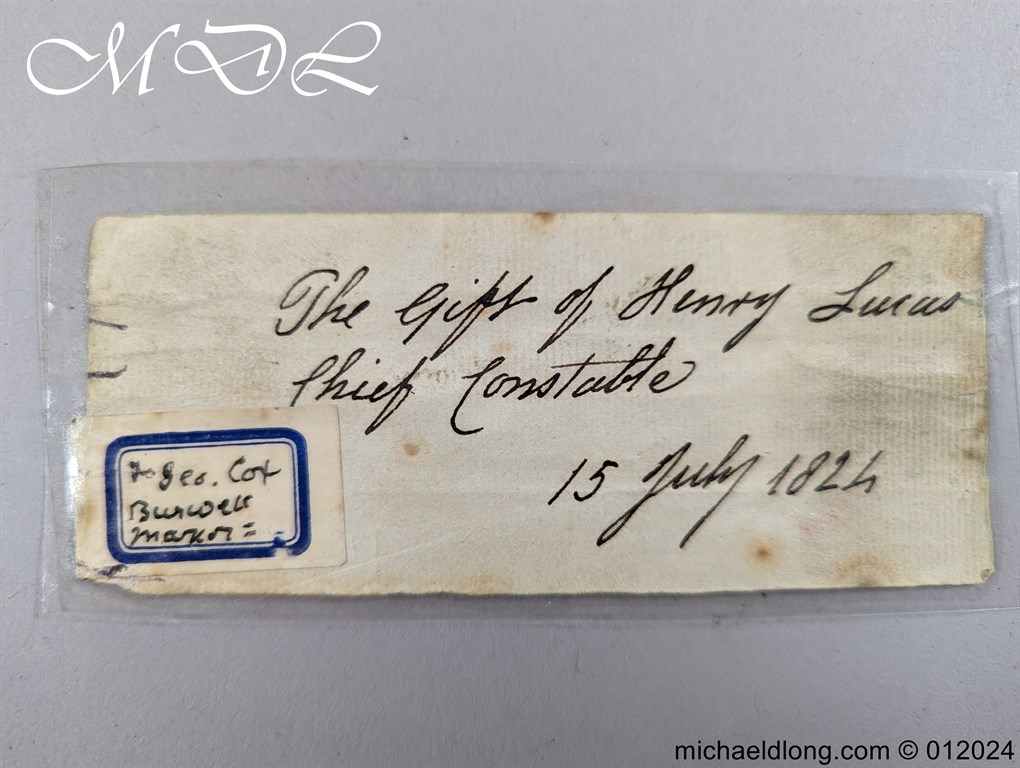 MDL
The Gift of Henry Lucas
Chief Constable
15 July 1824
To Geo. Cox
Burwell
Manor =
michaeldlong.com © 012024